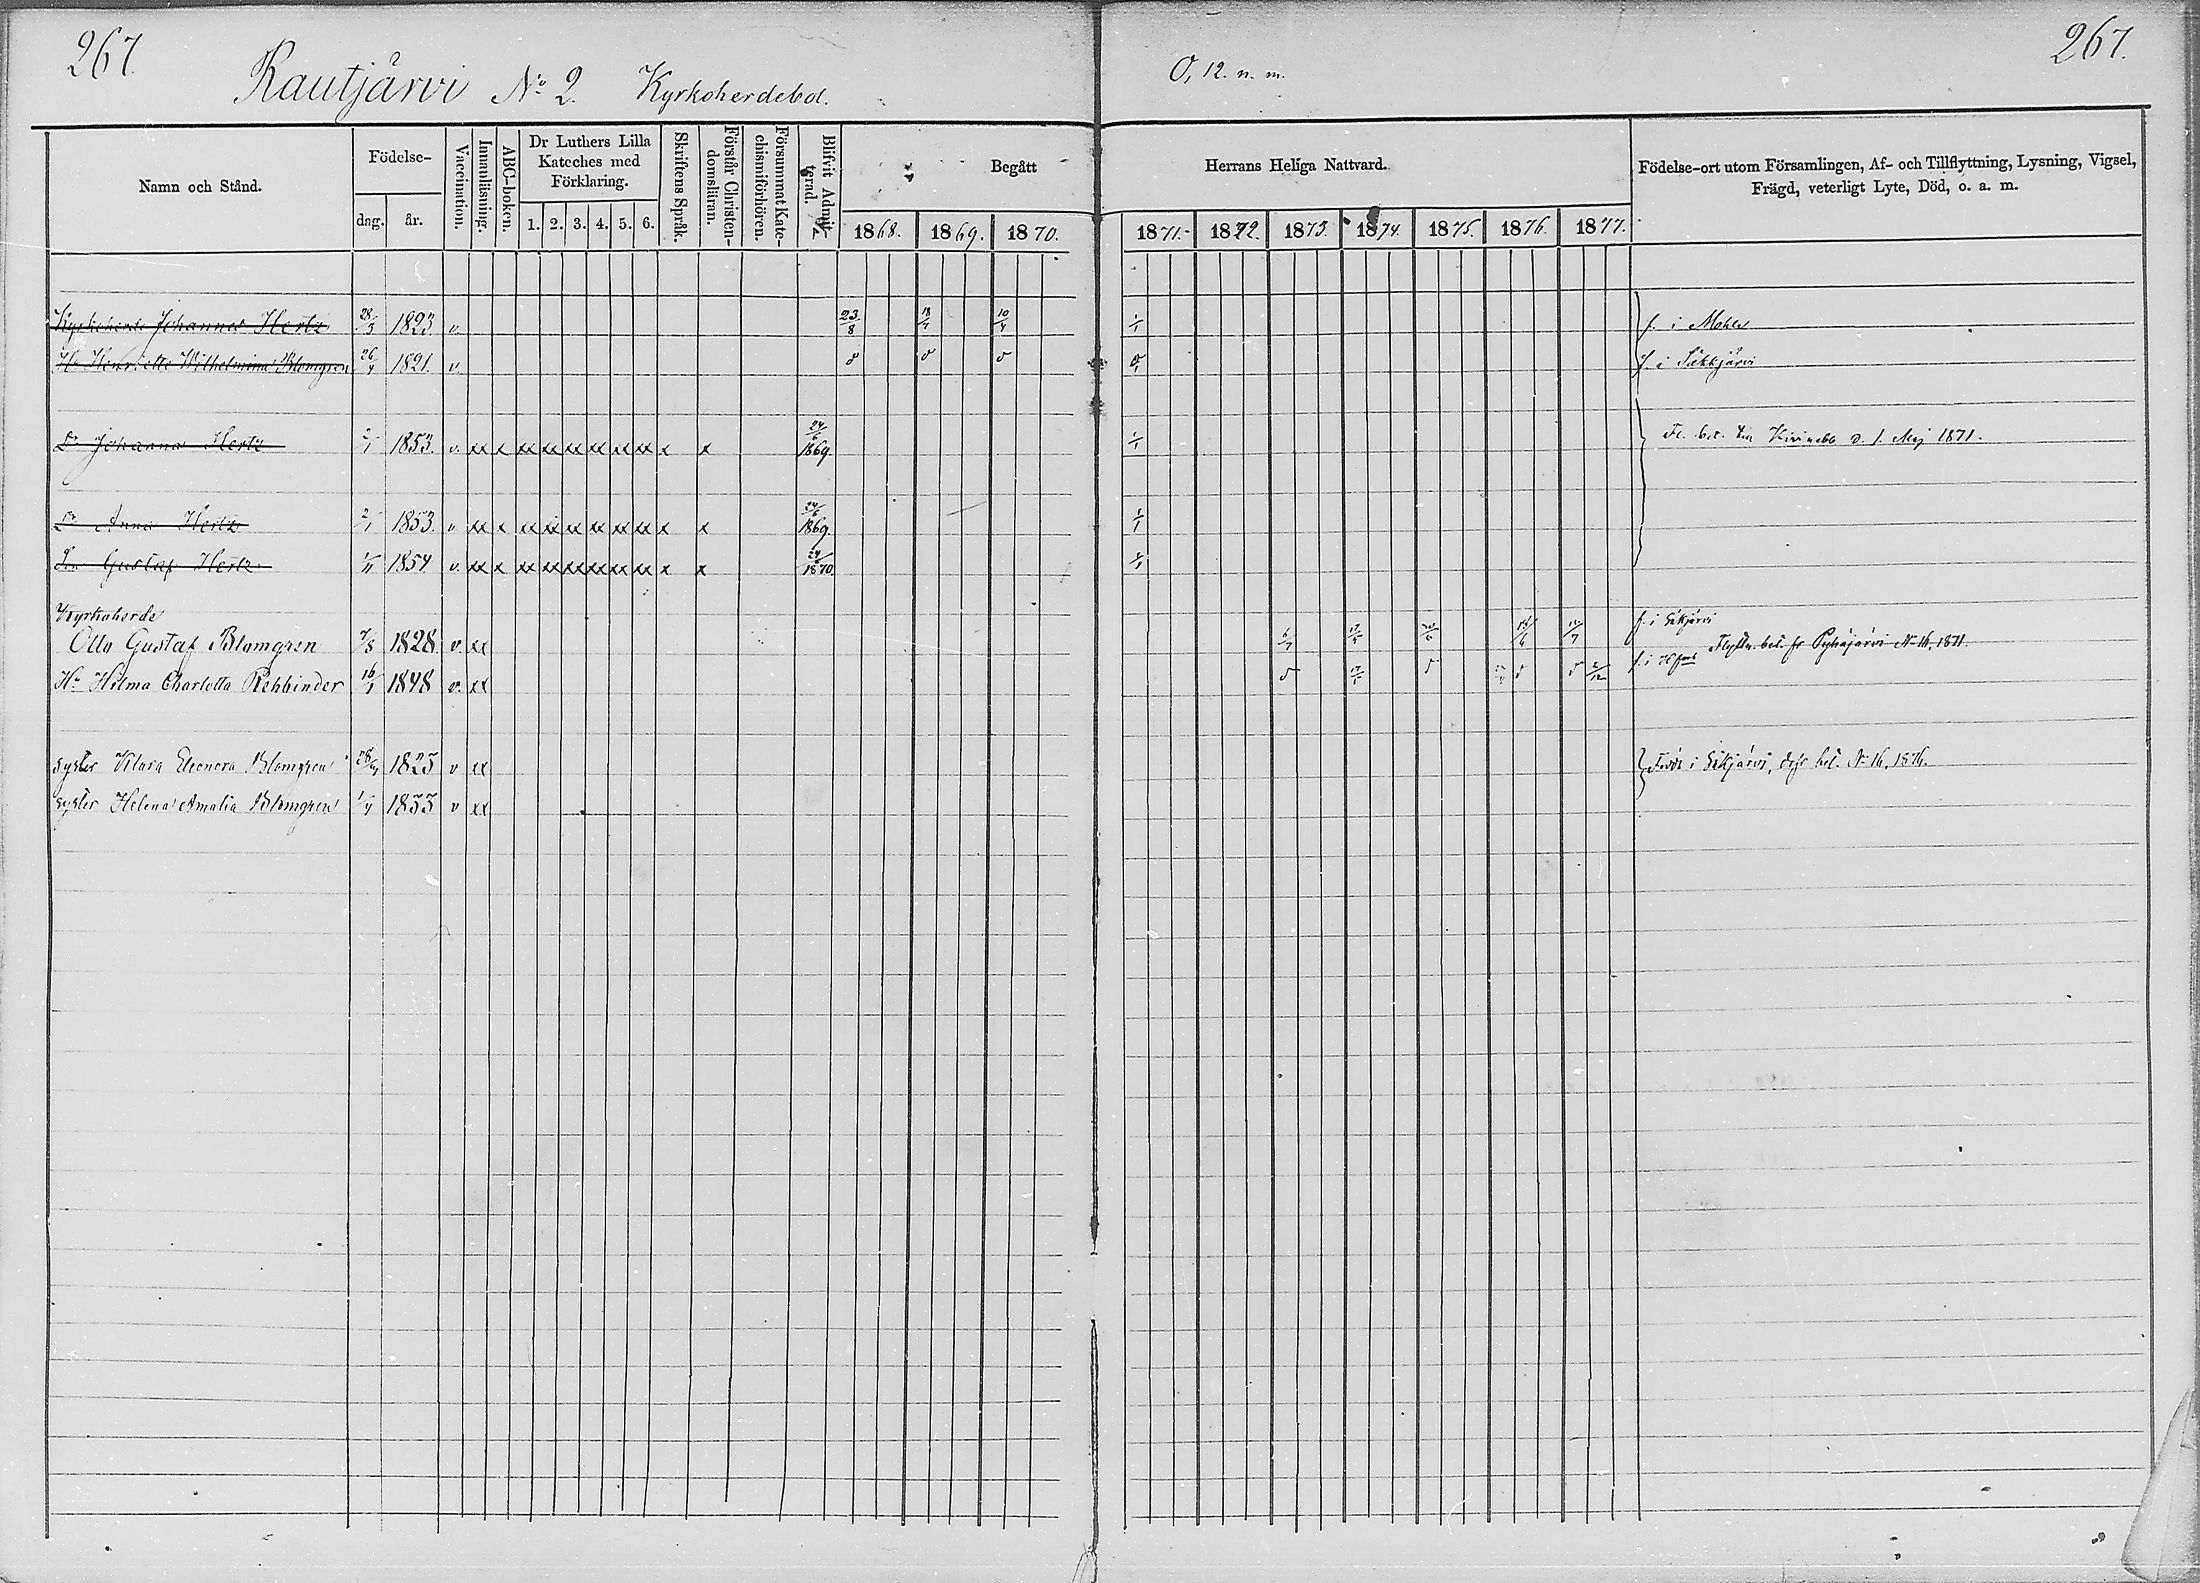 267.
Rautjärvi No 2. Kyrkoherdebol.
O, 12. n. m.
267.
Namn och Stånd.
Födelse-
dag. år.
Vaccination.
Innanläsning.
ABC-boken.
Dr Luthers Lilla
Kateches med
Förklaring.
1. 2. 3. 4. 5. 6.
Skriftens Språk.
Förstår Christen-
domsläran.
Försummat Kate-
chismiförhören.
Blifvit Admit-
terad.
Begått
1868. 1869. 1870.
Herrans Heliga Nattvard.
1871. 1872. 1873. 1874. 1875. 1876. 1877.
Födelse-ort utom Församlingen, Af- och Tillflyttning, Lysning, Vigsel,
Frägd, veterligt Lyte, Död, o. a. m.
Kyrkoherde Johannes Hertz 28/3 1823 v 23/8 18/7 10/4 1/1 f. i Mohla
Hu Henriette Wilhelmina Blomgren 26/4 1821. v f. i Säkkjärvi
Dr Johanna Hertz 2/1 1853. v. xx x xx xx xx xx xx xx x x 24/6 1869. 1/1 Fl. bet. till Kivinebb d. 1 Maj 1871.
Dr Anna Hertz 2/1 1853. v. xx x xx xx xx xx xx xx x x 24/6 1869. 1/1
Son Gustaf Hertz 1/11 1854 v. xx x xx xx xx xx xx xx x x 24/6 1870. 1/1
Kyrkoherde f. i Säkjärvi
Otto Gustaf Blomgren 7/8 1828. v. xx Flyttn. bet. fr Pyhäjärvi No 16, 1871.
Hu Hilma Charlotta Rehbinder 16/1 1848 v. xx f. i Hfors
syster Klara Eleonora Blomgren 1825 v xx Född i Säkjärvi, dfr bet. No 16, 1876.
syster Helena Amalia Blomgren 1/4 1833 v xx